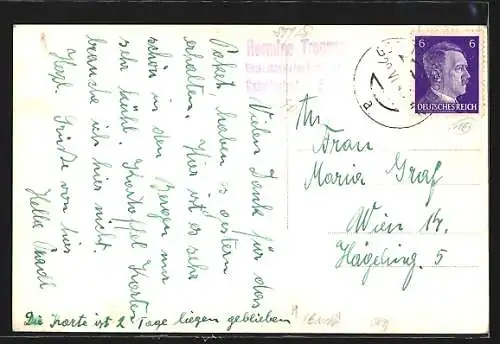 Vielen Dank für das
Paket haben es gestern
erhalten. Hier ist es sehr
schön in den Bergen nur
sehr kühl. Kartoffel Karten
brauche ich hier nicht.
Herzl. Grüße von hier
Hella
Die Karte ist 2 Tage liegen geblieben
Hermine
6 6
DEUTSCHES REICH
An
Frau
Maria Graf
Wien 14.
Hägeling. 5